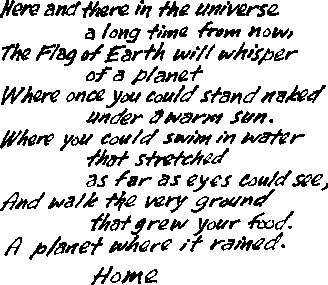 Here and there in the universe
a long time from now,
The Flag of Earth will whisper
of a planet
Where once you could stand naked
under a warm sun.
Where you could swim in water
that stretched
as far as eyes could see,
And walk the very ground
that grew your food.
A planet where it rained.
Home